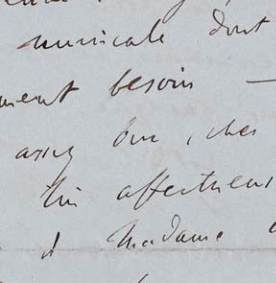 musicale dont
ment besoin —
assez bon, cher
affectueux
et Madame